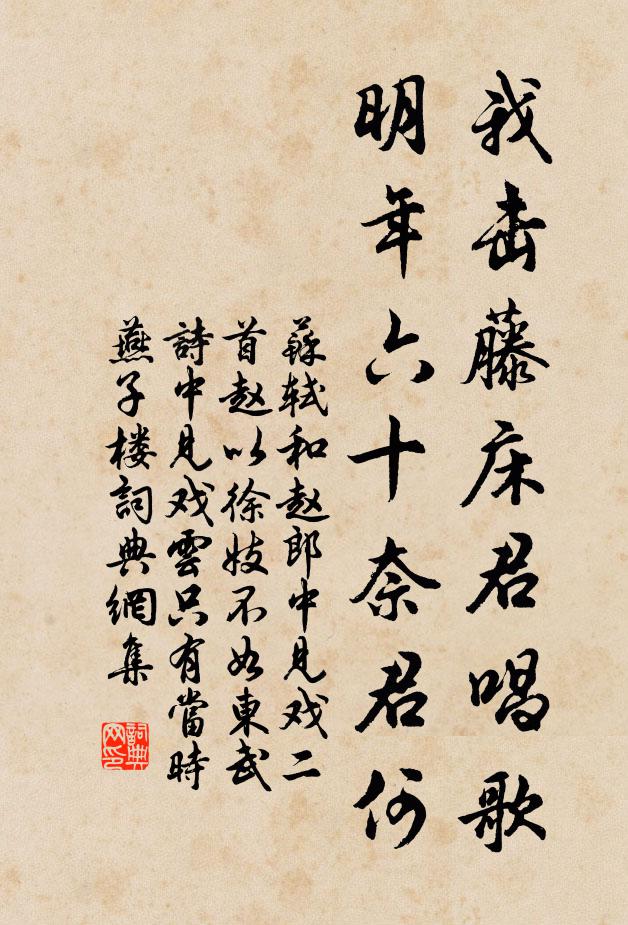 我击藤床君唱歌
明年六十奈君何
蘇轼和赵郎中見戏二
首赵以徐妓不如東武
詩中見戏雲只有當時
燕子楼詞典網集
詞典网印